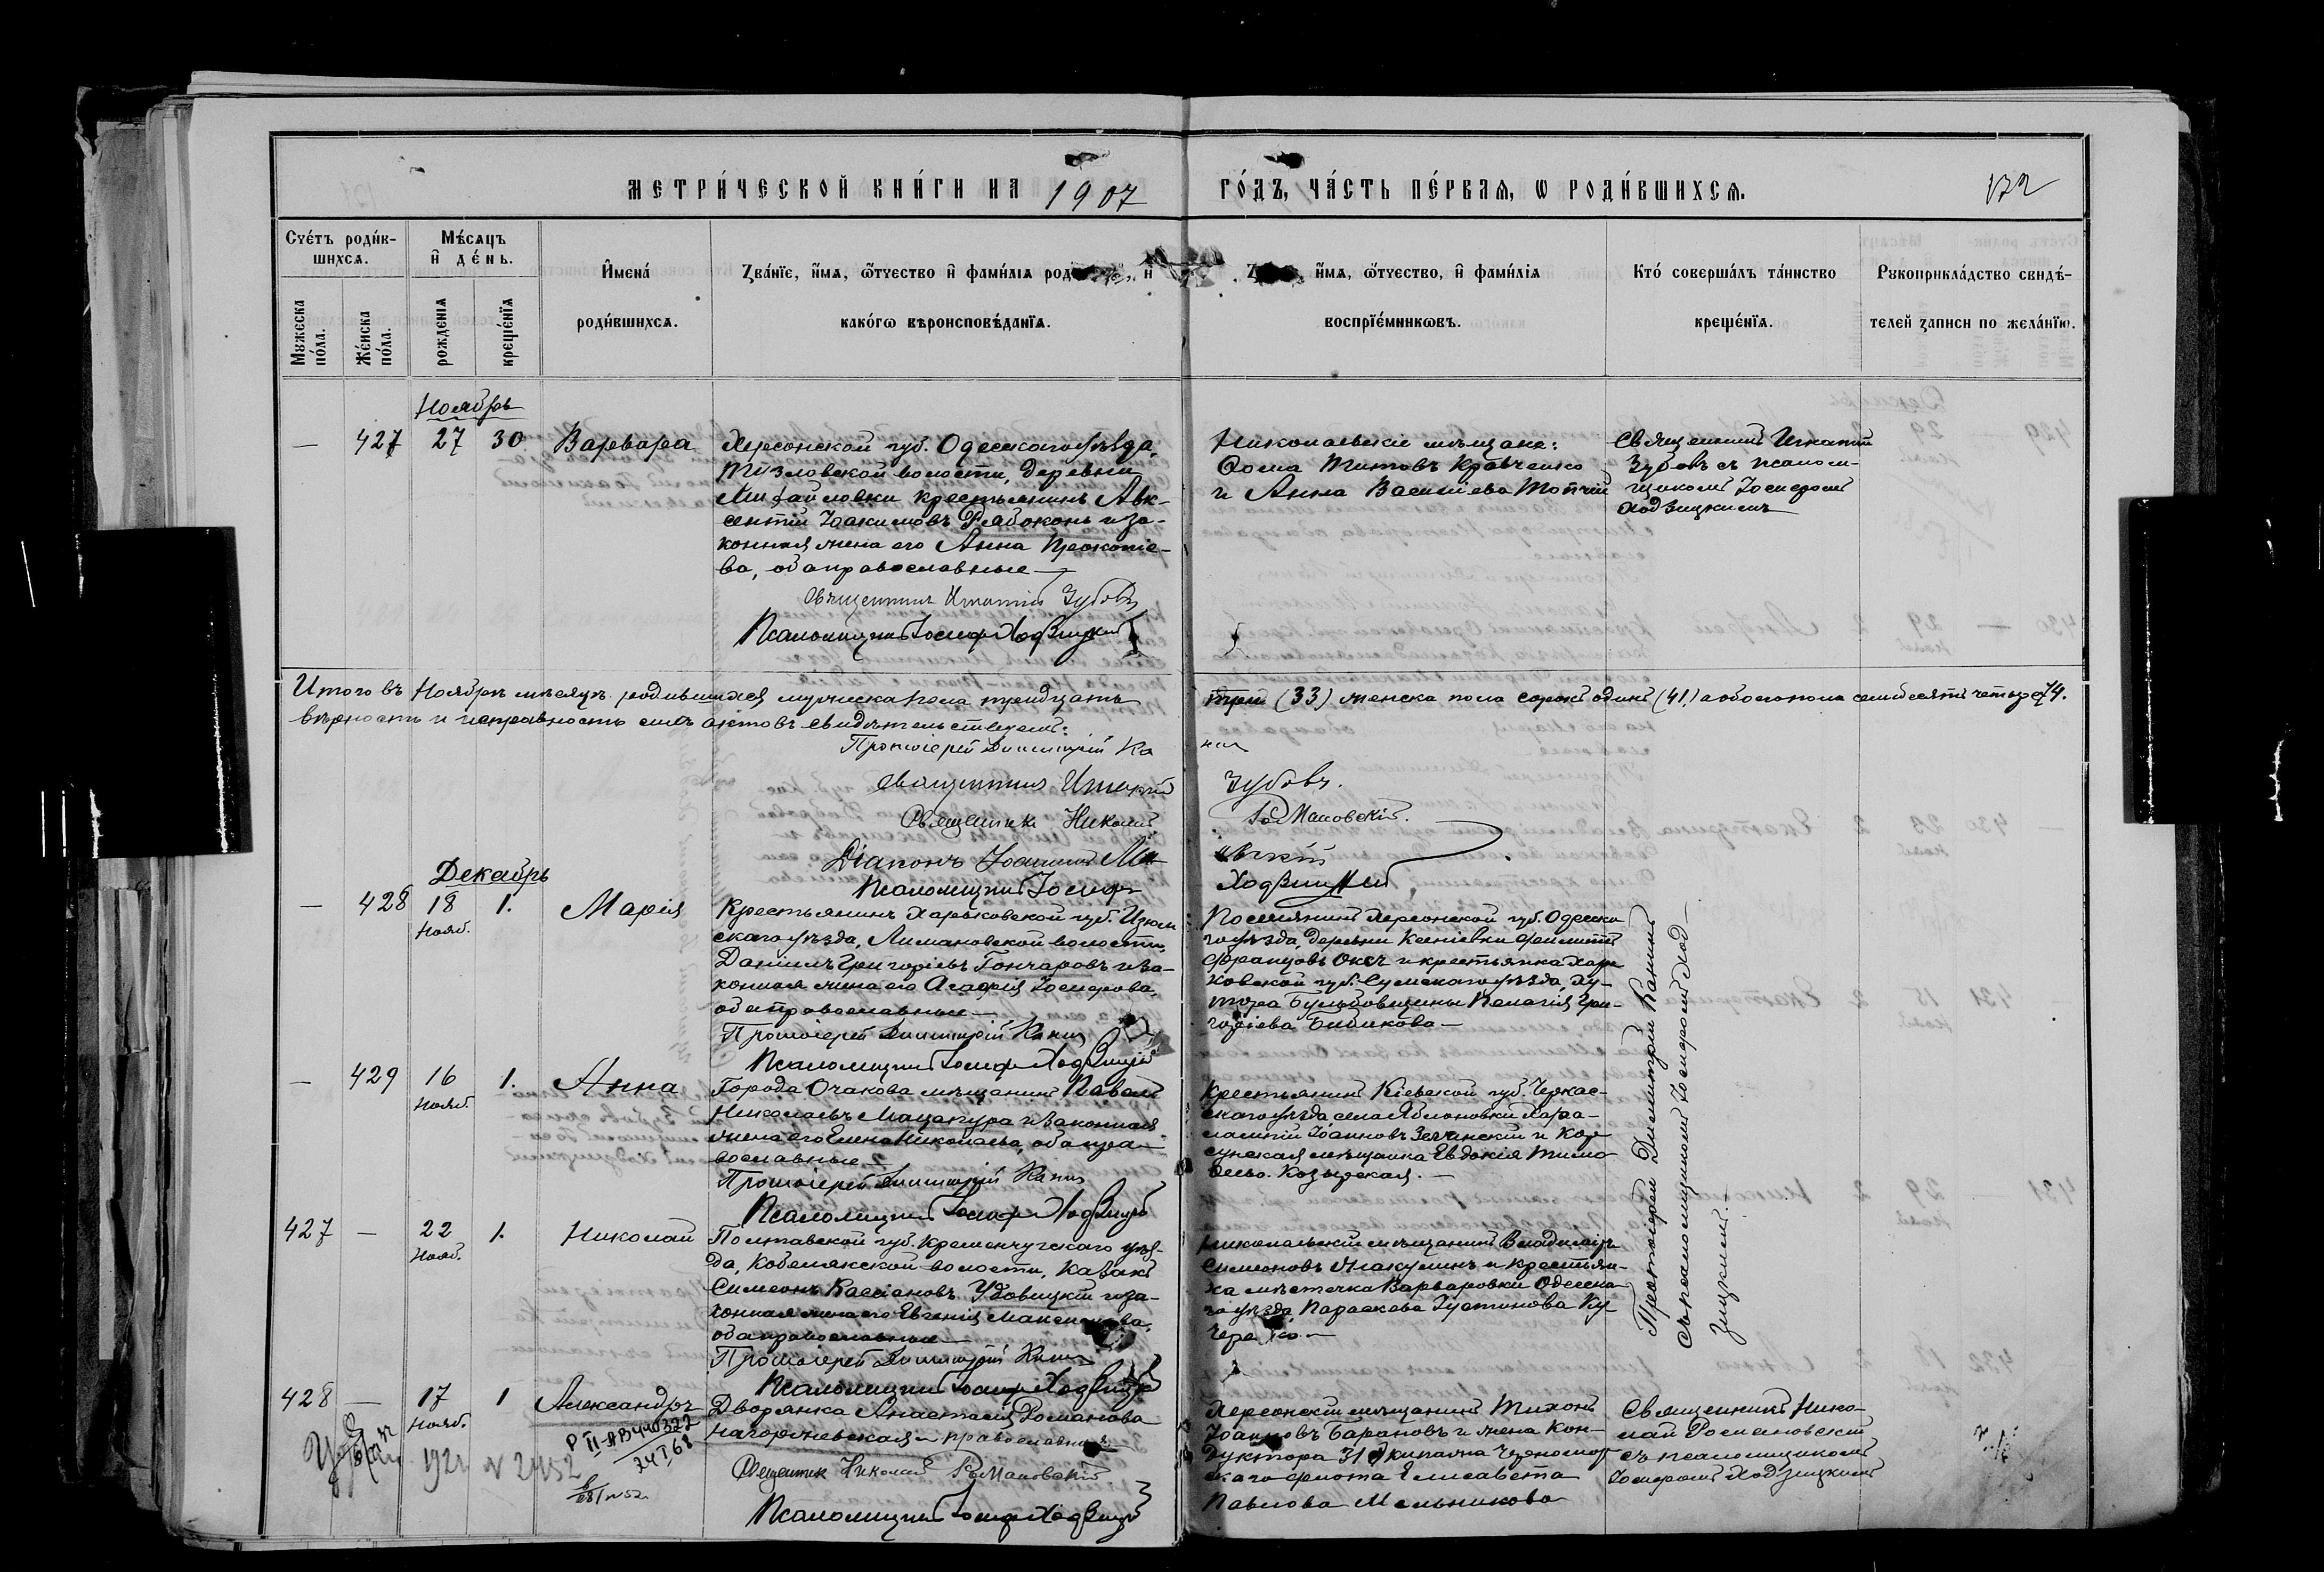 МЕТРИ́ЧЕСКОЙ КНИ́ГИ НА 1907 ГО́ДЪ, ЧА́СТЬ ПЕ́РВАЯ, Ѡ РОДИ́ВШИХСЯ.
172
Сче́тъ роди́в-
шихся.
Мѣ́сяцъ
и҆ де́нь.
Мꙋжеска
по́ла.
Же́нска
по́ла.
рожде́нїя
креще́нїя
И҆мена́
роди́вшихся.
Зва́нїе, и҆́мя, ѻ҆́тчество и҆ фами́лїя род и҆
како́гѡ вѣроисповѣ́данїя.
и҆́мя, ѻ҆́тчество, и҆ фами́лїя
воспрїе́мниковъ.
Кто́ соверша́лъ та́инство
креще́нїя.
Рꙋкоприкла́дство свидѣ́-
телей записи по жела́нїю.
Ноябрь
— 427 27 30 Варвара
Херсонской губ. Одесскаго уѣзда,
волости, деревни
Михайловки крестьянинъ Авк-
сентій Іоакимовъ Рябоконь и за-
конная жена его Анна Прокопіе-
ва, оба православные —
Священникъ Игнатій Зубовъ
Псаломщикъ Іосифъ Ходзицкій
Николаевскіе мѣщане:
Ѳома Титовъ Кравченко
и Анна Василіева Топчій
Священникъ Игнатій
Зубовъ съ псалом-
щикомъ Іосифомъ
Ходзицкимъ
Итого въ Ноябрѣ мѣсяцѣ родившихся мужеска пола тридцать три (33) женска пола сорокъ одинъ (41) а обоего пола семьдесятъ четыре 74.
вѣрность и исправность сихъ актовъ свидѣтельствуемъ:
Протоіерей Димитрій Ка
Священникъ Игнатій Зубовъ.
Священникъ Николай Романовскій.
Діаконъ Іоаннъ
Псаломщикъ Іосифъ Ходзицкій
Декабрь
— 428 18 Нояб. 1. Марія
Крестьянинъ Харьковской губ. Изюм
скаго уѣзда, Лимановской волости,
Даніилъ Григоріевъ Гончаровъ и за-
конная жена его Агафія Іосифова,
оба православные —
Протоіерей Димитрій
Псаломщикъ Іосифъ Ходзицкій
Поселянинъ Херсонской губ. Одесска
го уѣзда, деревни
Францовъ и крестьянка Харь
ковской губ. Сумскаго уѣзда, ху-
тора Пелагія Гри-
горіева Бибикова —
— 429 16 Нояб. 1. Анна
Города Очакова мѣщанинъ Павелъ
Николаевъ Мацапура и законная
жена его Елена Николаева, оба пра-
вославные —
Протоіерей Димитрій
Псаломщикъ Іосифъ Ходзицкій
Крестьянинъ Кіевской губ. Черкас-
скаго уѣзда села Яблоновки Хара-
лампій Іоанновъ и Кор
сунская мѣщанка Евдокія Тимо
Козырская. —
427 — 22 Нояб. 1. Николай
Полтавской губ. Кременчугскаго уѣз-
да, Кобелякской волости, казакъ
Симеонъ Кассіановъ Удовицкій и за-
конная жена его Евгенія Максимова,
оба православные —
Протоіерей Димитрій
Псаломщикъ Іосифъ Ходзицкій
Николаевскій мѣщанинъ Владиміръ
Симеоновъ и крестьян-
ка мѣстечка Варваровки Одесска
го уѣзда, Параскева Іустинова Ку
Протоіерей Димитрій
съ псаломщикомъ Іосифомъ Ход-
зицкимъ. —
428 — 17 Нояб. 1 Александръ
Дворянка Анастасія Романова
Нагорачевская, православная —
Священникъ Николай Романовскій
Псаломщикъ Іосифъ Ходзицкій
Херсонскій мѣщанинъ Тихонъ
Іоанновъ Барановъ и жена Кон-
дуктора 31 экипажа Черномор
скаго флота Елисавета
Павлова Мельникова
Священникъ Нико-
лай Романовскій
съ псаломщикомъ
Іосифомъ Ходзицкимъ